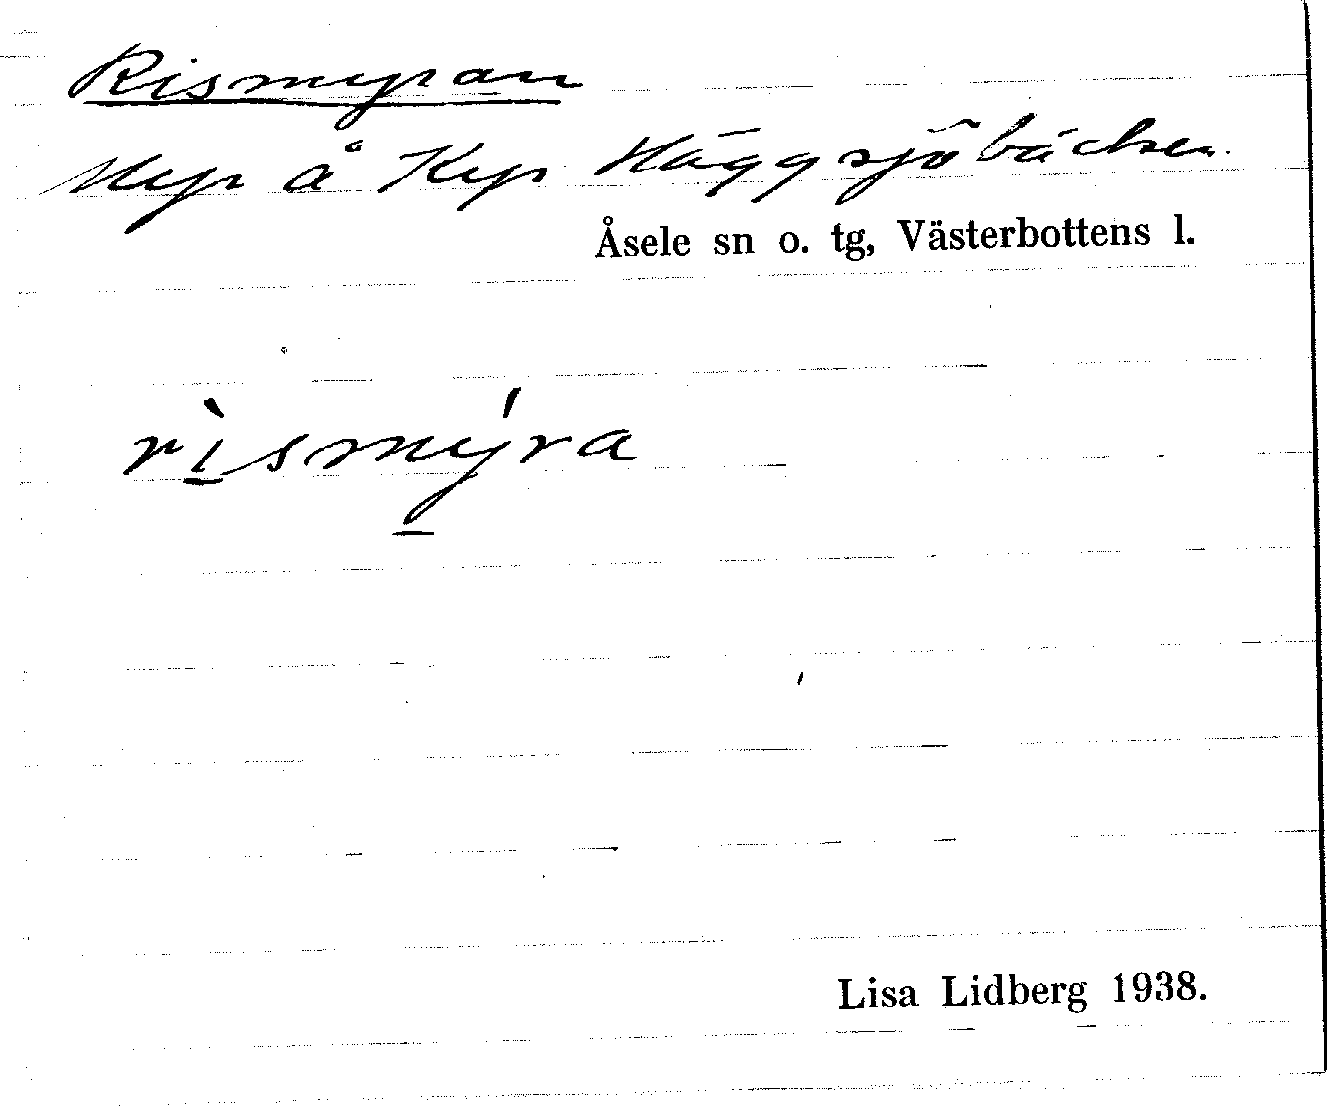 Rismyran
Myr å Kyr Häggsjöbäcken.
Åsele sn o. tg, Västerbottens l.
rìsmýra
Lisa Lidberg 1938.